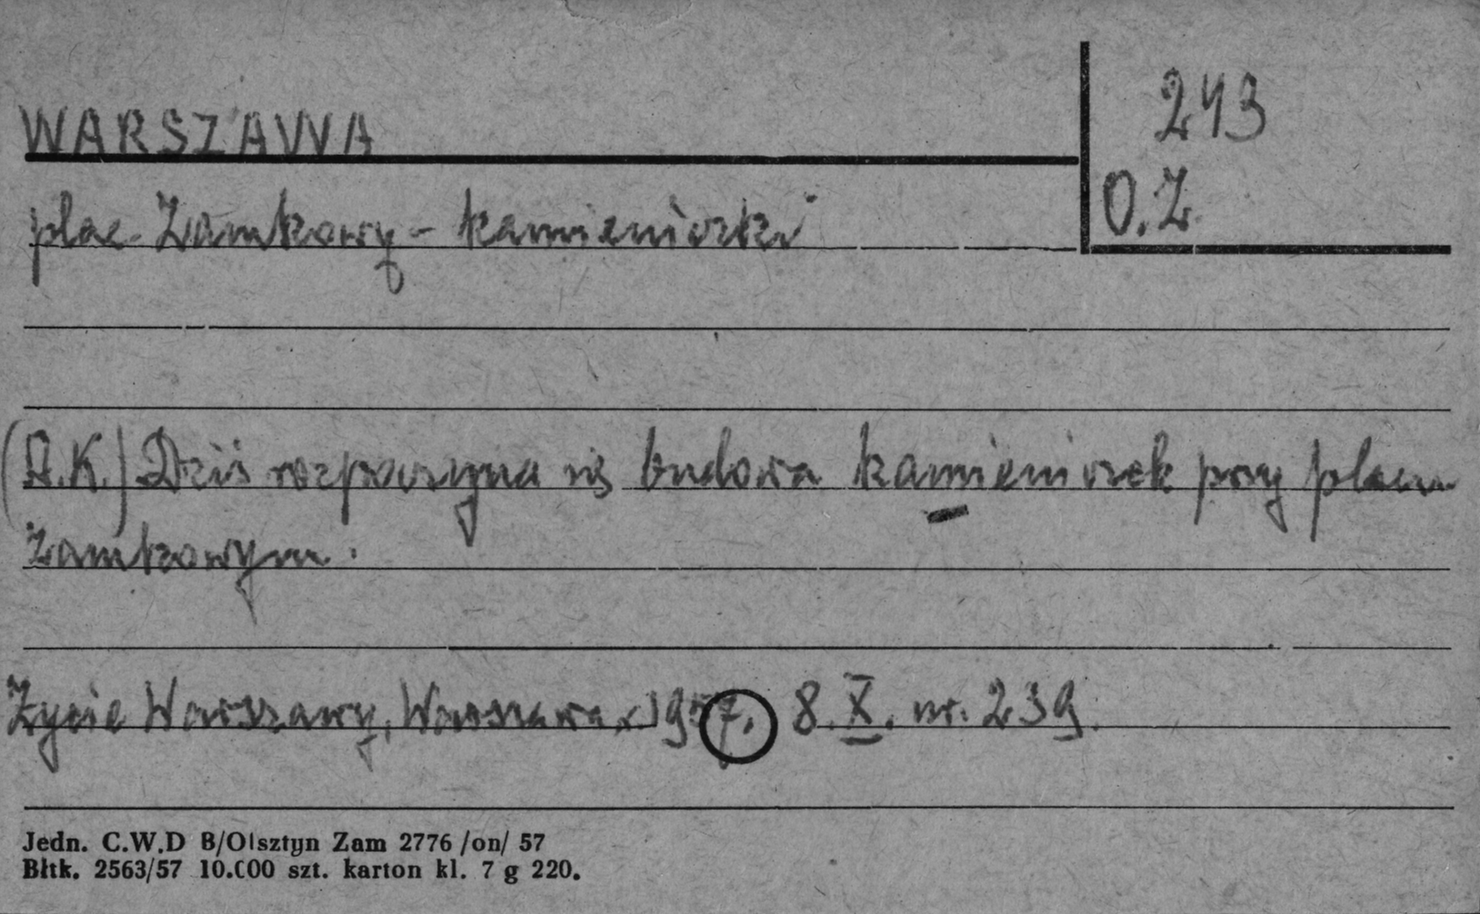 WARSZAWA
243
O.Z.
plac Zamkowy - kamieniczki
(A.K.) Dziś rozpoczyna się budowa kamieniczek przy placu
Zamkowym.
Życie Warszawy, Warszawa 1957. 8.X. nr. 239.
Jedn. C.W.D B/Olsztyn Zam 2776 /on/ 57
Bltk. 2563/57 10.000 szt. karton kl. 7 g 220.